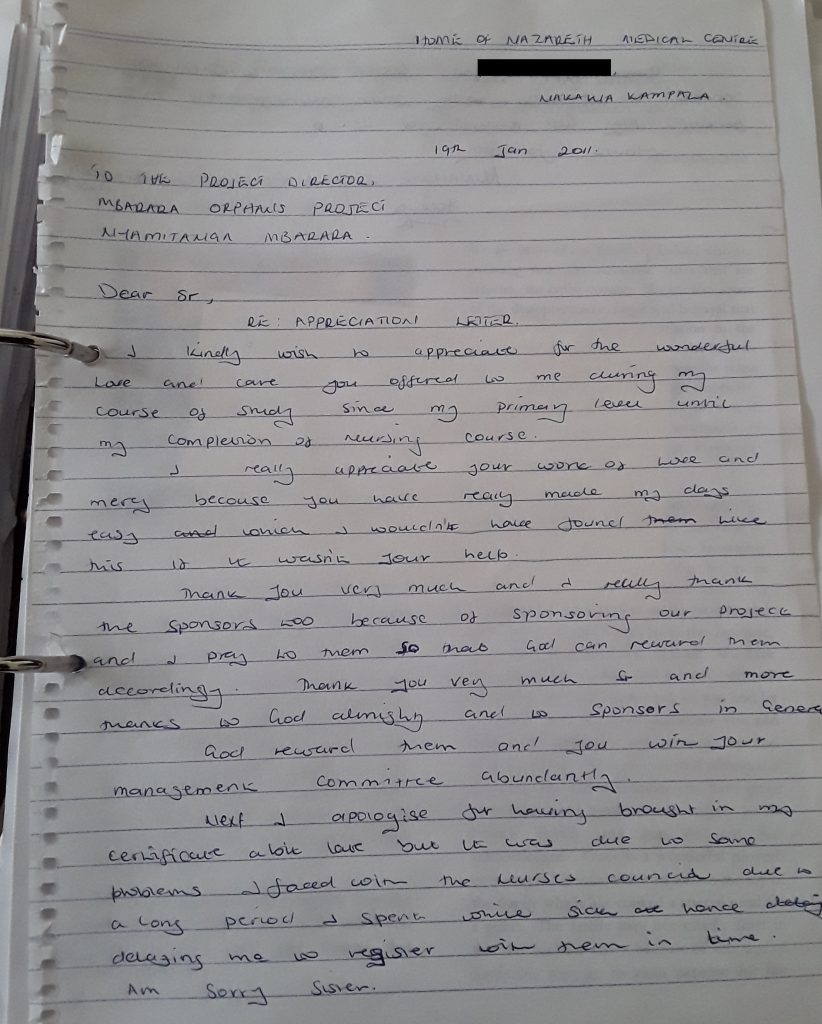 HOME OF NAZARETH MEDICAL CENTRE
NAKAWA KAMPALA.
19th Jan 2011.
TO THE PROJECT DIRECTOR,
MBARARA ORPHANS PROJECT
NYAMITANGA MBARARA.
Dear Sr,
RE: APPRECIATION LETTER.
I kindly wish to appreciate for the wonderful
love and care you offered to me during my
course of study since my primary level until
my completion of nursing course.
I really appreciate your work of love and
mercy because you have really made my days
easy and which I wouldn't have found them like
this if it wasn't your help.
Thank you very much and I really thank
the sponsors too because of sponsoring our project
and I pray to them so that God can reward them
accordingly. Thank you very much & and more
thanks to God almighty and to sponsors in General
God reward them and you with your
management committee abundantly.
Next I apologise for having brought in my
certificate abit late but it was due to some
problems I faced with the Nurses council due to
a long period I spent while sick hence
delaying me to register with them in time.
Am Sorry Sister.